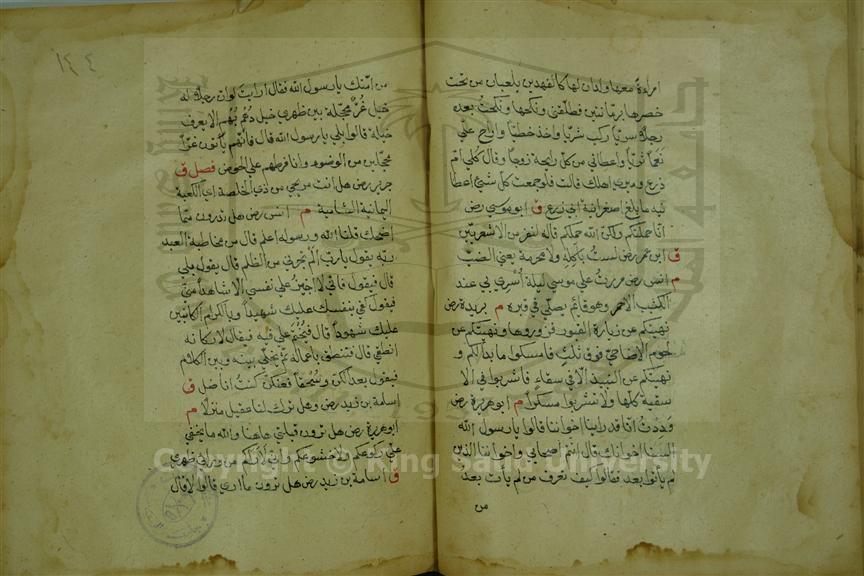 امراءة معها ولدان لها كالفهدين يلعبان من تحت
خصرها برمانتين فطلقني ونكحها ونكحت بعده
رجلا سريا ركب شريا واخذ خطيا واراح علي
نعما ثريا واعطاني من كل رايحة زوجا وقال كلي ام
زرع وميري اهلك قالت فلو جمعت كل شيئ اعطا
نيه ما بلغ اصغر انية ابي زرع ق ابو موسي رض
انا حملتكم ولكن الله حملكم قاله لنفر من الاشعريين
ق ابن عمر رض لست بآكله ولا محرمه يعني الضب
م انس رض مررت علي موسي ليلة أسري بي عند
الكثيب الاحمر وهو قائم يصلي في قبره م بريدة رض
نهيتكم عن زيارة القبور فزوروها ونهيتكم عن
لحوم الاضاحي فوق ثلث فامسكوا ما بدا لكم و
نهيتكم عن النبيذ الا في سقاء فاشربوا في الا
سقية كلها ولا تشربوا مسكرا م ابو هريرة رض
وددت انا قد راينا اخواننا قالوا يا رسول الله
السنا اخوانك قال انتم اصحابي واخواننا الذين
لم يأتوا بعد فقالوا كيف تعرف من لم يات بعد
من
١٤٤
من امتك يا رسول الله فقال أرايت لو ان رجلا له
خيل غر محجلة بين ظهري خيل دهم بهم الا يعرف
خيله قالوا بلي يا رسول الله قال فانهم يأتون غرا
محجلين من الوضوء وانا فرطهم علي الحوض فصل ق
جرير رض هل انت مريحي من ذي الخلصة اي الكعبة
اليمانية الشامية م انس رض هل تدرون مما
اضحك قلنا الله ورسوله اعلم قال من مخاطبة العبد
ربه يقول يا رب الم تجرني من الظلم قال يقول بلي
قال فيقول فاني لا اجيز علي نفسي الا شاهدا مني
فيقول كفي بنفسك عليك شهيدا وبالكرام الكاتبين
عليك شهودا قال فيختم علي فيه فيقال لاركانه
انطقي قال فتنطق باعماله ثم يخلي بينه وبين الكلام
فيقول بعدا لكن وسحقا فعنكن كنت اناضل ق
اسامة بن زيد رض وهل ترك لنا عقيل منزلا م
ابو هريرة رض هل ترون قبلتي هاهنا والله ما يخفي
علي ركوعكم ولا خشوعكم واني لاراكم من وراي ظهري
ق اسامة بن زيد رض هل ترون ما اري قالوا لا قال
Copyright © King Saud University